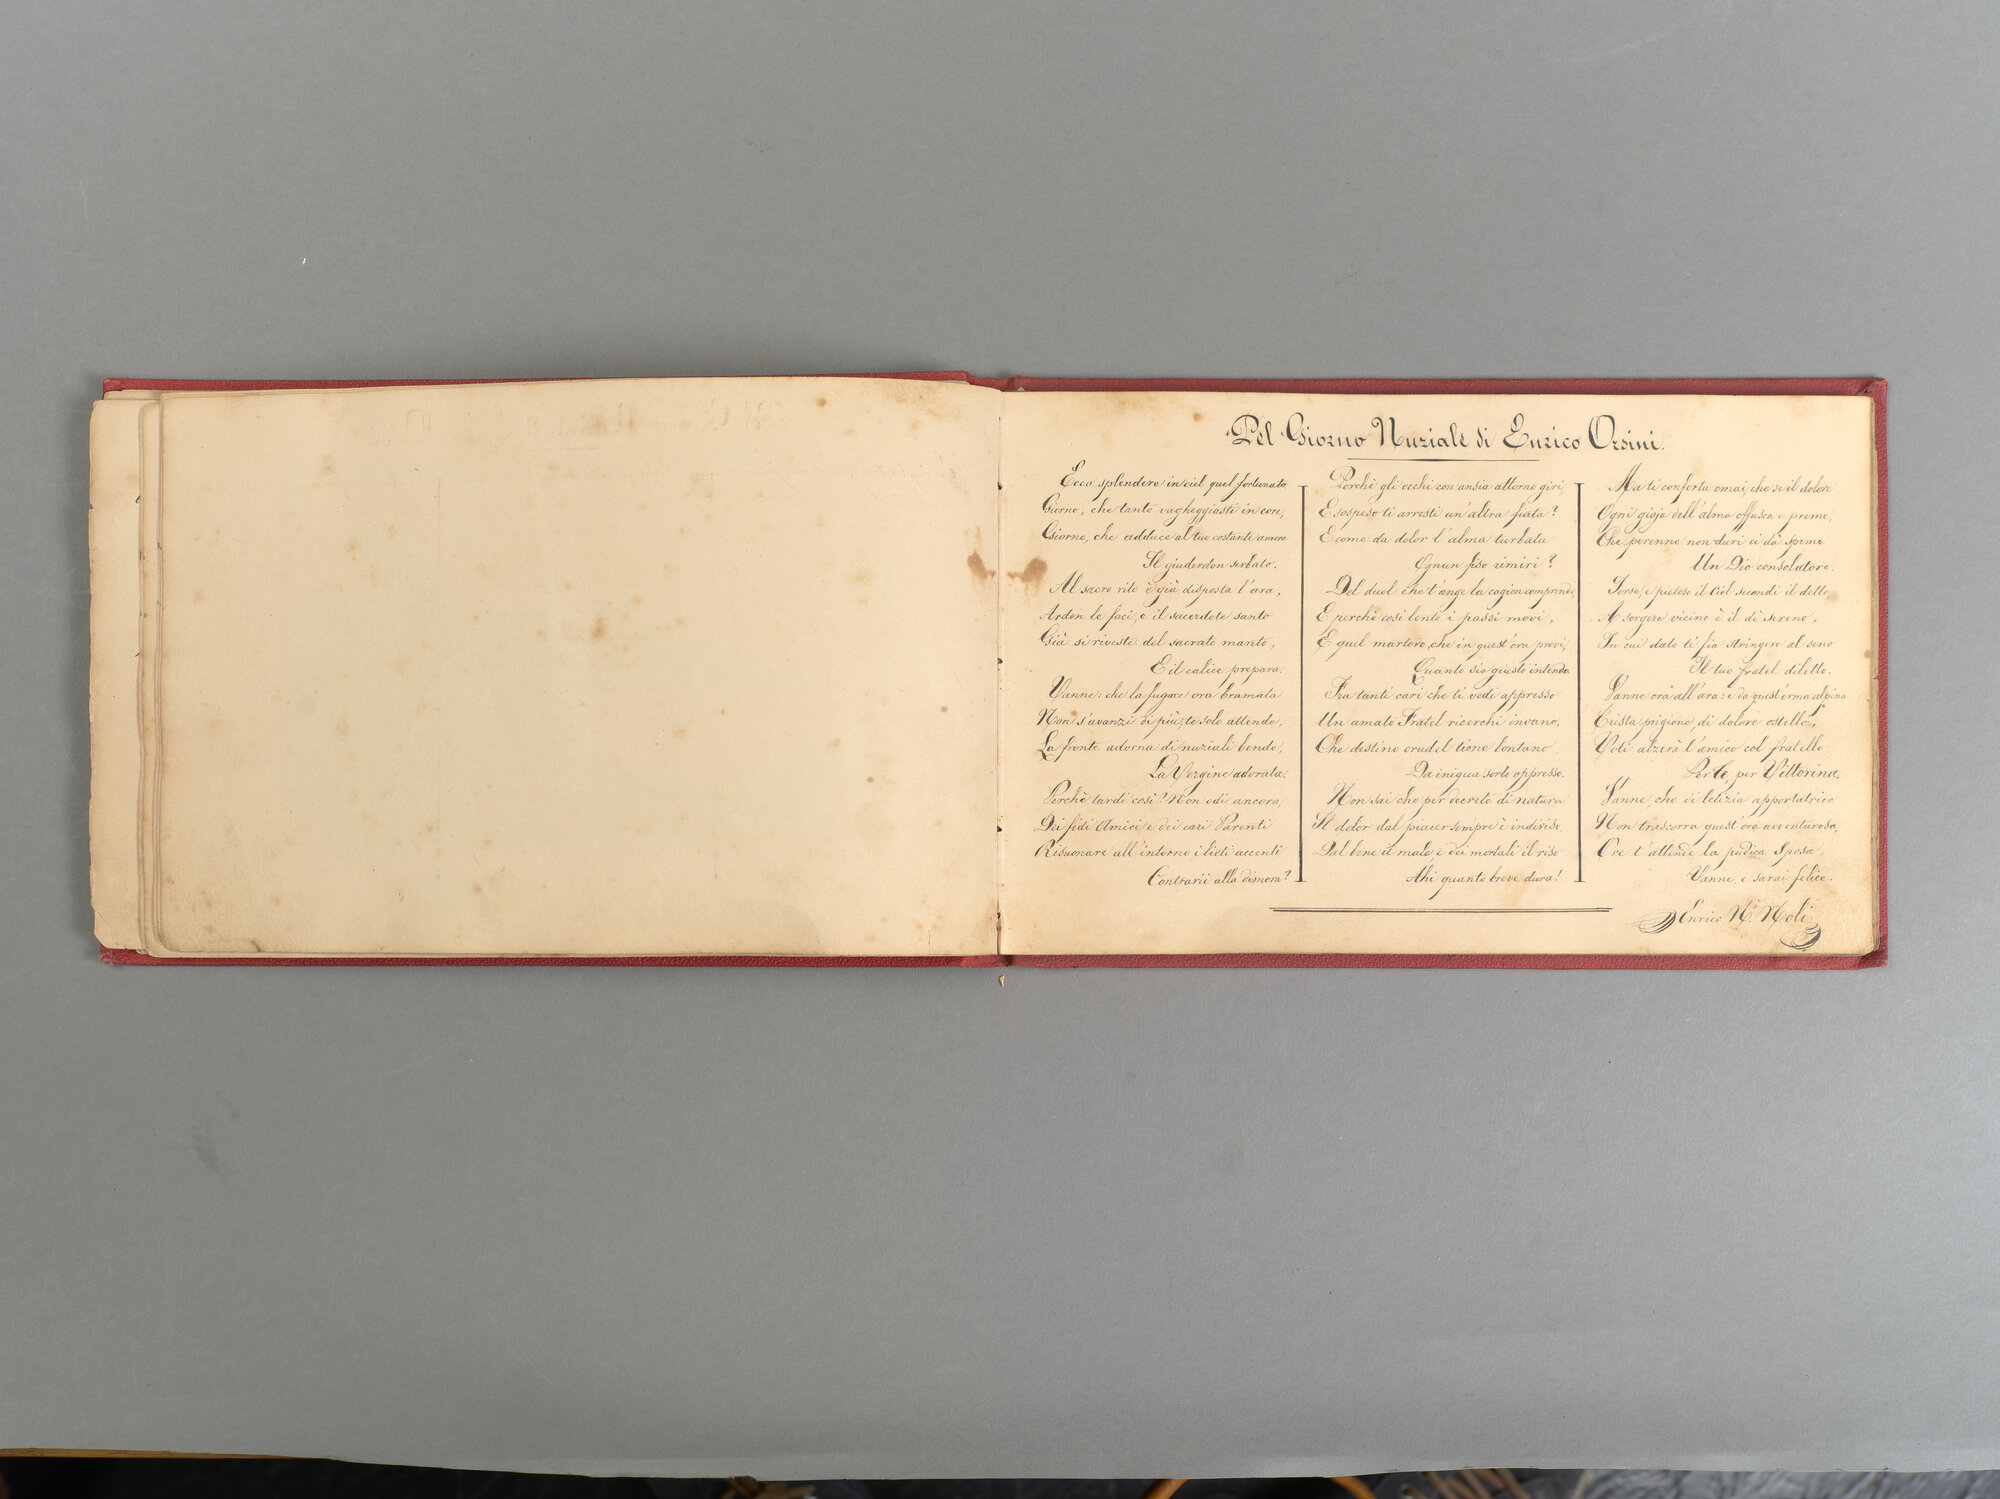 Pel Giorno Nuziale di Enrico Orsini.
Ecco splendere in ciel quel fortunato
Giorno, che tanto vagheggiasti in core,
Giorno, che adduce al tuo costante amore
Il giuderdon serbato.
Al sacro rito è già disposta l'ara,
Ardon le faci, e il sacerdote santo
Già si riveste del sacrato manto,
E il calice prepara.
Vanne: che la fugace ora bramata
Non s'avanzi di più; te solo attende,
La fronte adorna di nuziali bende,
La Vergine adorata.
Perchè tardi così? Non odi ancora,
Dei fidi Amici e dei cari Parenti
Risuonare all'intorno i lieti accenti
Contrarii alla dimora?
Perchè gli occhi con ansia attorno giri,
E sospeso ti arresti un'altra fiata?
E come da dolor l'alma turbata
Ognun fiso rimiri?
Del duol che t'ange la cagion comprendo,
E perchè così lento i passi movi,
E quel martoro, che in quest'ora provi,
Quanto sia giusto intendo.
Fra tanti cari che ti vedi appresso
Un amato Fratel ricerchi invano,
Che destino crudel tiene lontano
Da iniqua sorte oppresso.
Non sai che per decreto di natura
Il dolor dal piacer sempre è indiviso,
Dal bene il male, e dei mortali il riso
Ahi quanto breve dura!
Ma ti conforta omai, che se il dolore
Ogni gioja dell'alma offusca e preme,
Che perenne non duri ci dà speme
Un Dio consolatore.
Forse, e pietoso il Ciel secondi il detto,
A sorgere vicino è il dì sereno,
In cui dato ti fia stringere al seno
Il tuo fratel diletto.
Vanne ora all'ara: e da quest'erma alpina
Trista prigione, di dolore ostello,
Voti alzerà l'amico col fratello,
Per te, per Vittorina.
Vanne, che di letizia apportatrice
Non trascorra quest'ora avventurosa,
Ove t'attende la pudica Sposa,
Vanne, e sarai felice.
Enrico N. Noli